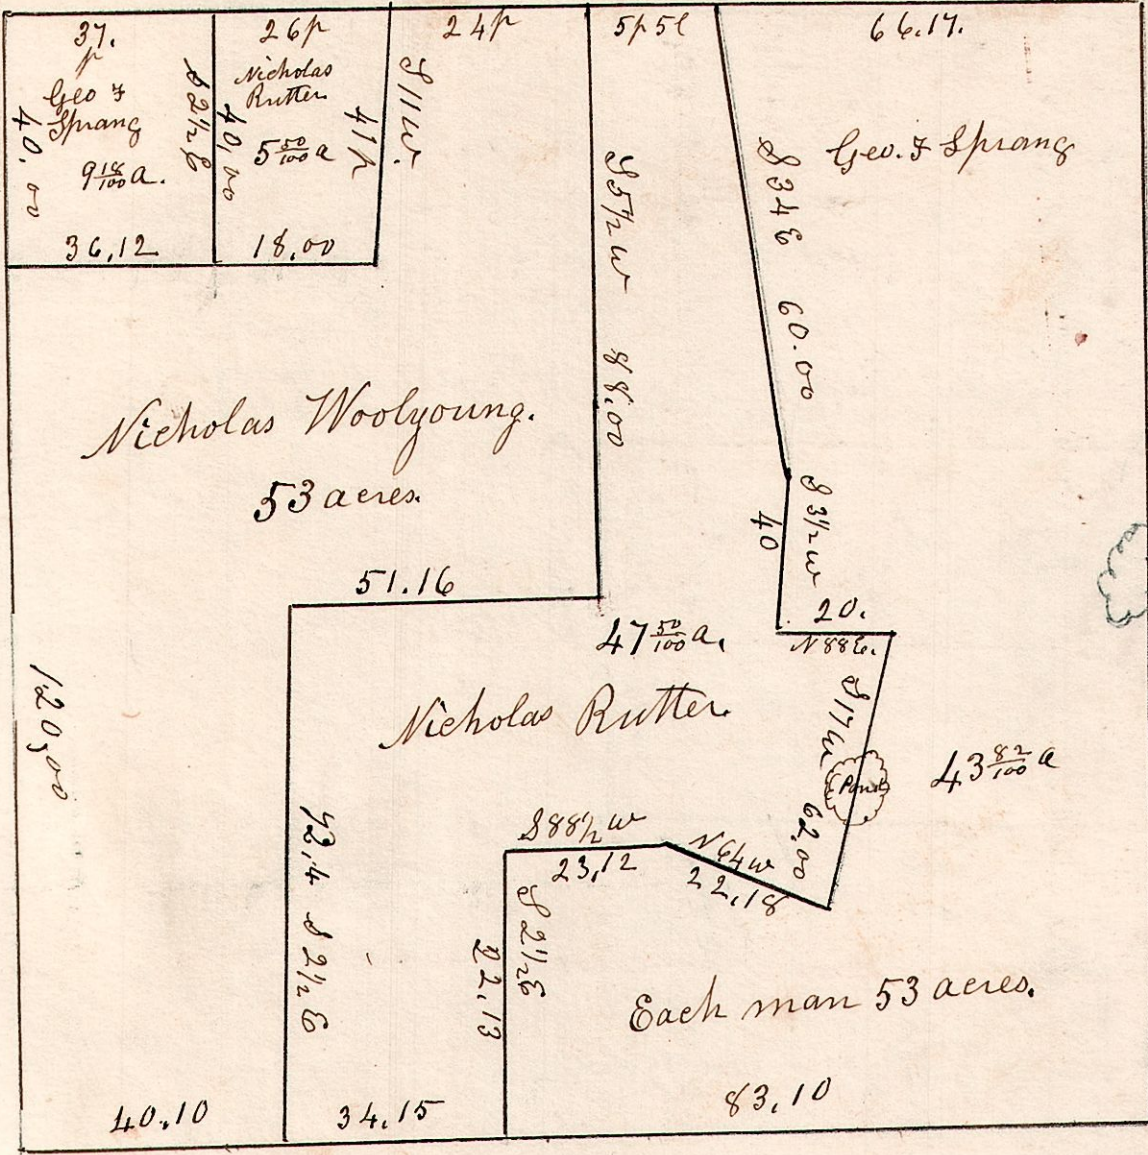 37. p
Geo F
Sprang
9 18/100 a.
40.00
36,12
S 2 1/2 E
26p
Nicholas
Rutter
5 50/100 a
40,00
41p
18,00
24p
S 11 W.
5p 5l
S 5 1/2 W 88.00
66.17.
Geo. F Sprang
S 34E 60.00
S 3 1/2 W
40
20.
N 88E.
Nicholas Woolyoung.
53 acres.
51.16
47 50/100 a.
Nicholas Rutter
S 17 W
62,00
Pond
43 82/100 a
120,00
S 88 1/2 W
23,12
N 64 W
22,18
72,4 S 2 1/2 E
S 2 1/2 E
22,13
Each man 53 acres.
40.10
34,15
83,10